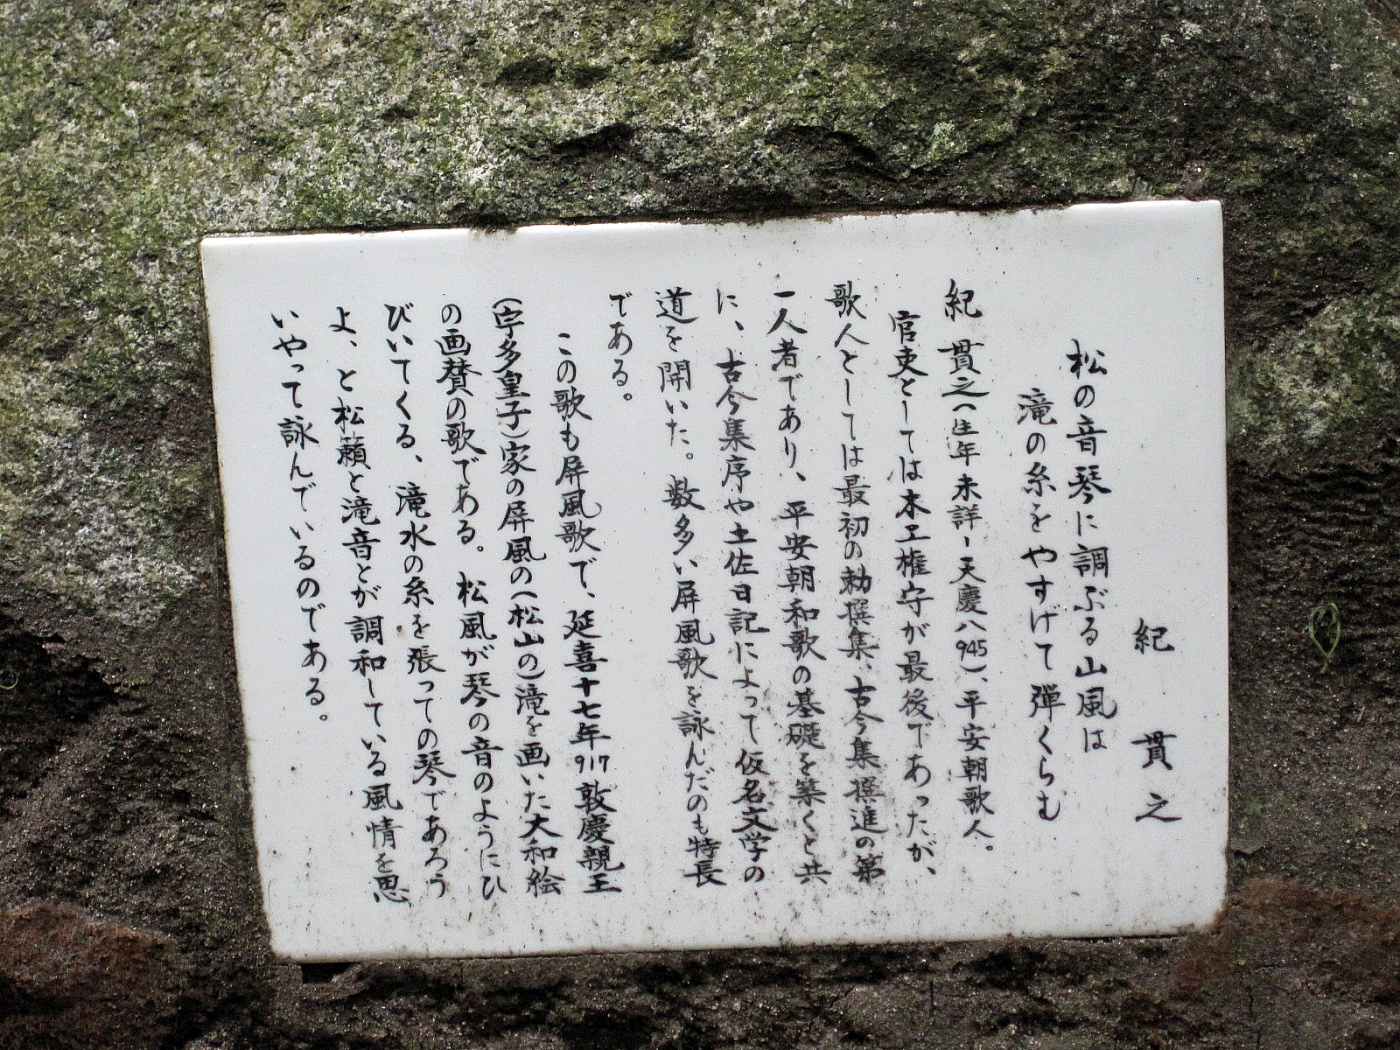 紀 貫之
松の音琴に調ぶる山風は
滝の糸をやすげて弾くらむ
紀 貫之(生年未詳ー天慶八945)、平安朝歌人。
官吏としては木工権守が最後であったが、
歌人としては最初の勅撰集、古今集撰進の第
一人者であり、平安朝和歌の基礎を築くと共
に、古今集序や土佐日記によって仮名文学の
道を開いた。数多い屏風歌を詠んだのも特長
である。
この歌も屏風歌で、延喜十七年917敦慶親王
(宇多皇子)家の屏風の(松山の)滝を画いた大和絵
の画賛の歌である。松風が琴の音のようにひ
びいてくる、滝水の糸を張っての琴であろう
よ、と松籟と滝音とが調和している風情を思
いやって詠んでいるのである。